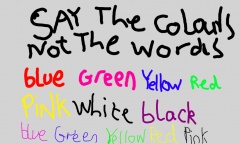 SAY The colours
Not The words
blue Green Yellow Red
Pink white black
blue Green Yellow Red Pink